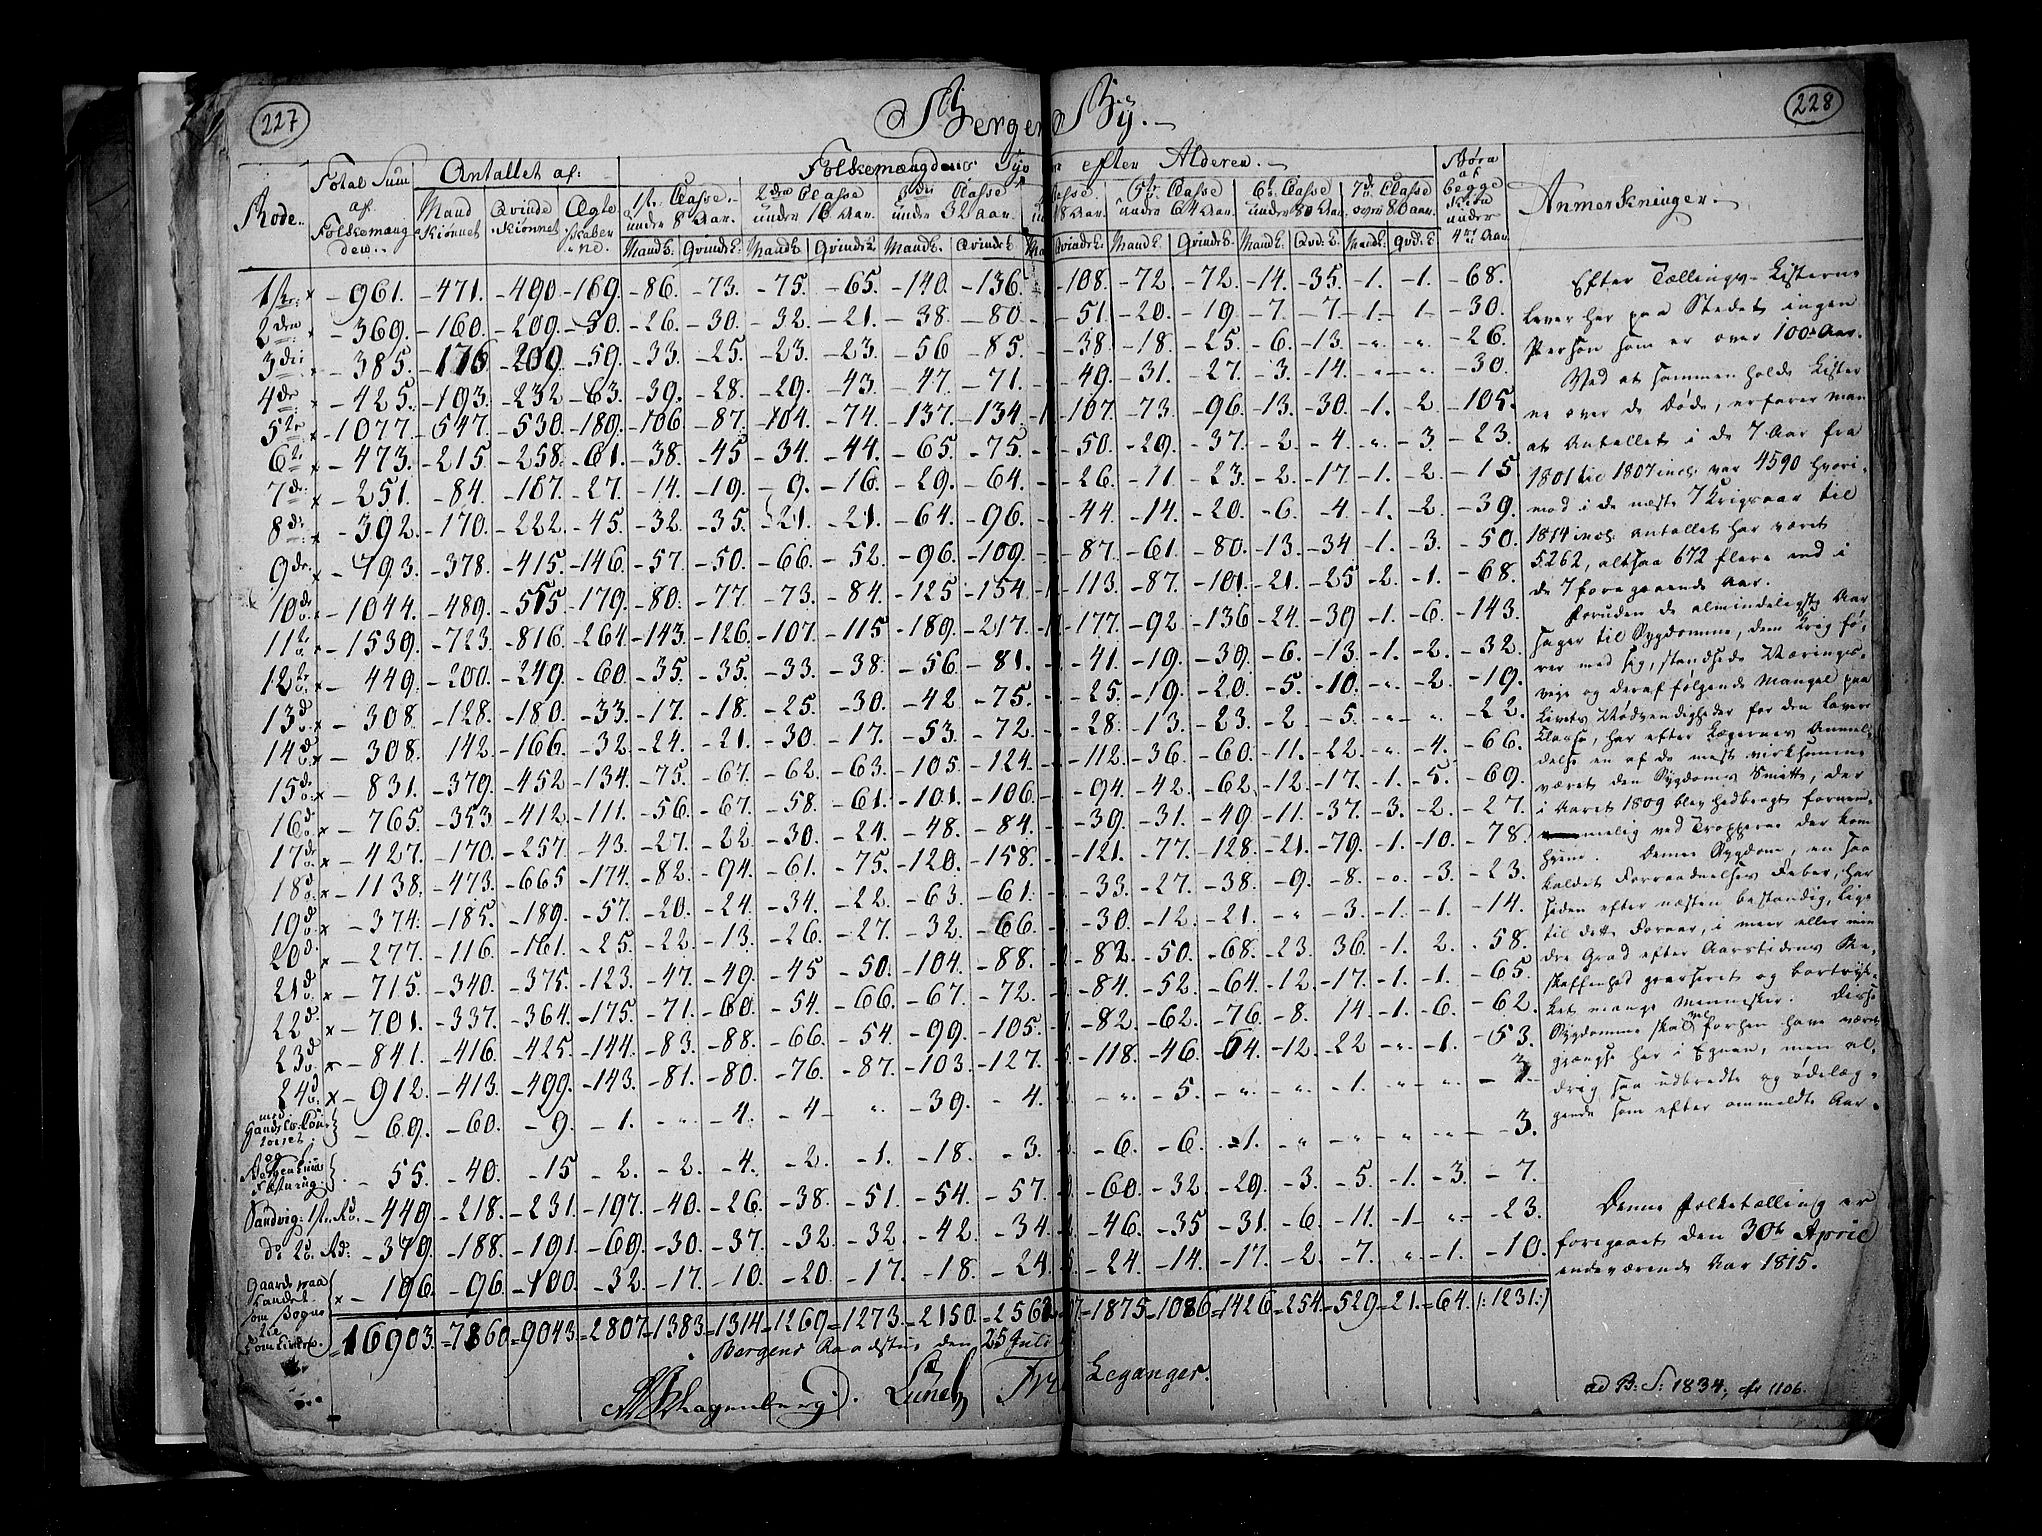 227
228
Bergens By.
Rode.
Total Sum af Folkemængden.
Antallet af:
Folkemængdens efter Alderen.
Børn af begge Kiøn under 4re Aar
Anmerkninger.
Mand Kiønnet
Qvinde Kiønnet
Ægteskaberne.
1ste Classe under 8 Aar.
2den Classe under 16 Aar.
3die Classe under 32 Aar.
5te Classe under 64 Aar.
6te Classe under 80 Aar.
7de Classe over 80 Aar.
Mandk. Qvindek. Mandk. Qvindek. Mandk. Qvindek. Qvindek. Mandk. Qvindek. Mandk. Qvdk. Mandk. Qvdk.
1ste x - 961. - 471. - 490 - 169. - 86. - 73. - 75. - 65. - 140. - 136. - 108. - 72 - 72. - 14. - 35. - 1. - 1. - 68.
2den x - 369. - 160. - 209. - 50. - 26. - 30. - 32. - 21. - 38. - 80 - 51. - 20. - 19. - 7. - 7. - 1. - 1 - 30.
3die x - 385. - 176 - 209. - 59. - 33. - 25. - 23. - 23. - 56 - 85. - 38. - 18. - 25. - 6. - 13. - „ - „ - 26.
4de x - 425. - 193. - 232 - 63. - 39. - 28. - 29. - 43. - 47. - 71. - 49. - 31. - 27. - 3. - 14. - „ - „ - 30.
5te x - 1077. - 547. - 530. - 189. - 106 - 87. - 104. - 74. - 137. - 134. - 107. - 73. - 96. - 13. - 30. - 1. - 2. - 105.
6te x - 473. - 215. - 258. - 61. - 38. - 45 - 34. - 44. - 65. - 75. - 50. - 29. - 37. - 2. - 4. - „ - 3. - 23.
7de x - 251. - 84. - 167. - 27. - 14. - 19. - 9. - 16. - 29. - 64. - 26. - 11. - 23. - 2. - 17. - 1. - 2. - 15
8de x - 392. - 170. - 222. - 45. - 32. - 35. - 21. - 21. - 64. - 96. - 44. - 14. - 20. - 6. - 4. - 1. - 2. - 39.
9de x - 793. - 378. - 415. - 146. - 57. - 50. - 66. - 52. - 96. - 109. - 87. - 61. - 80. - 13. - 34 - 1. - 3. - 50.
10de x - 1044. - 489. - 555 - 179. - 80. - 77. - 73. - 84. - 125 - 154. - 113. - 87. - 101. - 21. - 25 - 2. - 1. - 68.
11te x - 1539. - 723. - 816. - 264. - 143. - 126. - 107. - 115 - 189. - 217. - 177. - 92 - 136 - 24. - 39 - 1. - 6. - 143.
12te x - 449. - 200. - 249. - 60. - 35. - 35. - 33. - 38. - 56. - 81. - 41. - 19. - 39. - 6. - 13. - 1. - 2. - 32.
13de x - 308. - 128. - 180. - 33. - 17. - 18. - 25. - 30. - 42 - 75. - 25. - 19. - 20. - 5. - 10. - „ - 2. - 19.
14de x - 308. 142. - 166. - 32. - 24. - 21. - 30. - 17. - 53. - 72 - 28. - 13. - 23. - 2. - 5. - „ - „ - 22.
15de x - 831. - 379. - 452 - 134. - 75. - 67. - 62. - 63. - 105. - 124. - 112. - 36. - 60. - 11. - 22. - „ - 4. - 66.
16de x - 765. - 353. - 412. - 111. - 56. - 67. - 58. - 61. - 101. - 106. - 94. - 42. - 62. - 12. - 17. - 1. - 5. - 69.
17de x - 427. - 170. - 257. - 43. - 27. - 22 - 30. - 24. - 48. - 84. - 39. - 31. - 49. - 11. - 37. - 3. - 2. - 27.
18de x - 1138. - 473. - 665 - 174. - 82. - 94. - 61. - 75. - 120. - 158. - 121. - 77. - 128. - 21. - 79. - 1. - 10. - 78.
19de x - 374. - 185. - 189. - 57. - 20. - 24. - 34. - 22. - 63. - 61. - 33. - 27. - 38. - 9. - 8. - „ - 3. - 23.
20de x - 277. - 116. - 161. - 25. - 22. - 13. - 26. - 27. - 32. - 66. - 30. - 12. - 21. - „ - 3. - 1. - 1. - 14.
21de x - 715. - 340. - 375. - 123. - 47. - 49. - 45 - 50. - 104. - 88. - 82. - 50. - 68. - 23. 36. - 1. 2. - 58.
22de x - 701. - 337. - 364. - 175. - 71. - 60. - 54. - 66. - 67. - 72. - 84. - 52. - 64. - 12. - 17. - 1. - 1. - 65.
23de x - 841. - 416. - 425. - 144. - 83. - 88. - 66. - 54. - 99. - 105. - 82. - 62. - 76. - 8. 14. - 1. - 6. - 62.
24de x - 912. - 413. - 499. - 143. - 81. - 80. - 76. - 87. - 103. - 127. - 118. - 46. - 64. - 12. - 22 - „ - 1. - 53.
- 69. - 60. - 9. - 1. - „ - 4. - 4 - „ - 39. - 4. - „ - 5. - „ - „ - 1. - „ - „
- 55. - 40. - 15 - 2. - 2. - 4. - 2. - 1. - 18. - 3. - 6. - 6. - 1. - „ - „ - „ - „ - 3.
Sandvig: 1ste Rd. - 449. - 218. - 231. - 197. - 40. - 26. - 38. - 51. - 54. - 57. - 60. - 32. - 29. - 3. - 5. - 1. - 3. - 7.
do 2. Rd. - 379. - 188. - 191. - 69. - 30. - 37. - 32. - 32. - 42. - 34. - 46. - 35. - 31. - 6. - 11. - 1 - „ - 23.
Gaarde paa Landet x - 196. - 96. - 100. - 32. - 17. - 10. - 20. - 17. - 18. - 24. - 24. - 14. - 17. - 2. - 7. - „ - 1. - 10.
16903. = 7860 = 9043. = 2807. = 1383. = 1314. = 1269. = 1273. = 2150. = 2562 = 1875. = 1086 = 1426. = 254. = 529. = 21. = 64. (: 1231 :)
Bergens Raadstue den 25 Juli
Efter Tællings-Listerne
lever her paa Stedet ingen
Person som er over 100 Aar.
Ved at sammenholde Lister
ne over de Døde, erfarer man
at Antallet i de 7 Aar fra
1801 til 1807 incl. var 4590 hvori-
mod i de næste 7 Krigsaar til
1814 incl. antallet har været
5262, altsaa 672 flere end i
de 7 foregaaende Aar.
Foruden de almindeligste Aar
sager til Sygdomme, dem Krig fø-
rer med sig, standsede Nærings-
veje og deraf følgende Mangel paa
Livets Nødvendigheder for den lavere
Classe, har efter Lægernes Anmel-
delse en af de mest virksomme
været den Sygdoms Smitte, der
i Aaret 1809 blev hedbragt fornem-
melig ved Tropperne der kom
hjem. Denne Sygdom, en saa
kaldet Forraadnelses Feber, har
siden efter næsten bestandig, lige
til dette Foraar, i meer eller min
dre Grad efter Aarstidens Be-
skaffenhed grasseret og bortryk-
ket mange Mennesker. Disse
Sygdomme skal vel forhen have været
gængse her i Egnen, men al-
drig saa udbredte og ødelæg-
gende som efter anmeldte Aar.
Denne Folketælling er
foregaaet den 30te April
indeværende Aar 1815.
Leganger.
ad B: S: 1834,
1106.